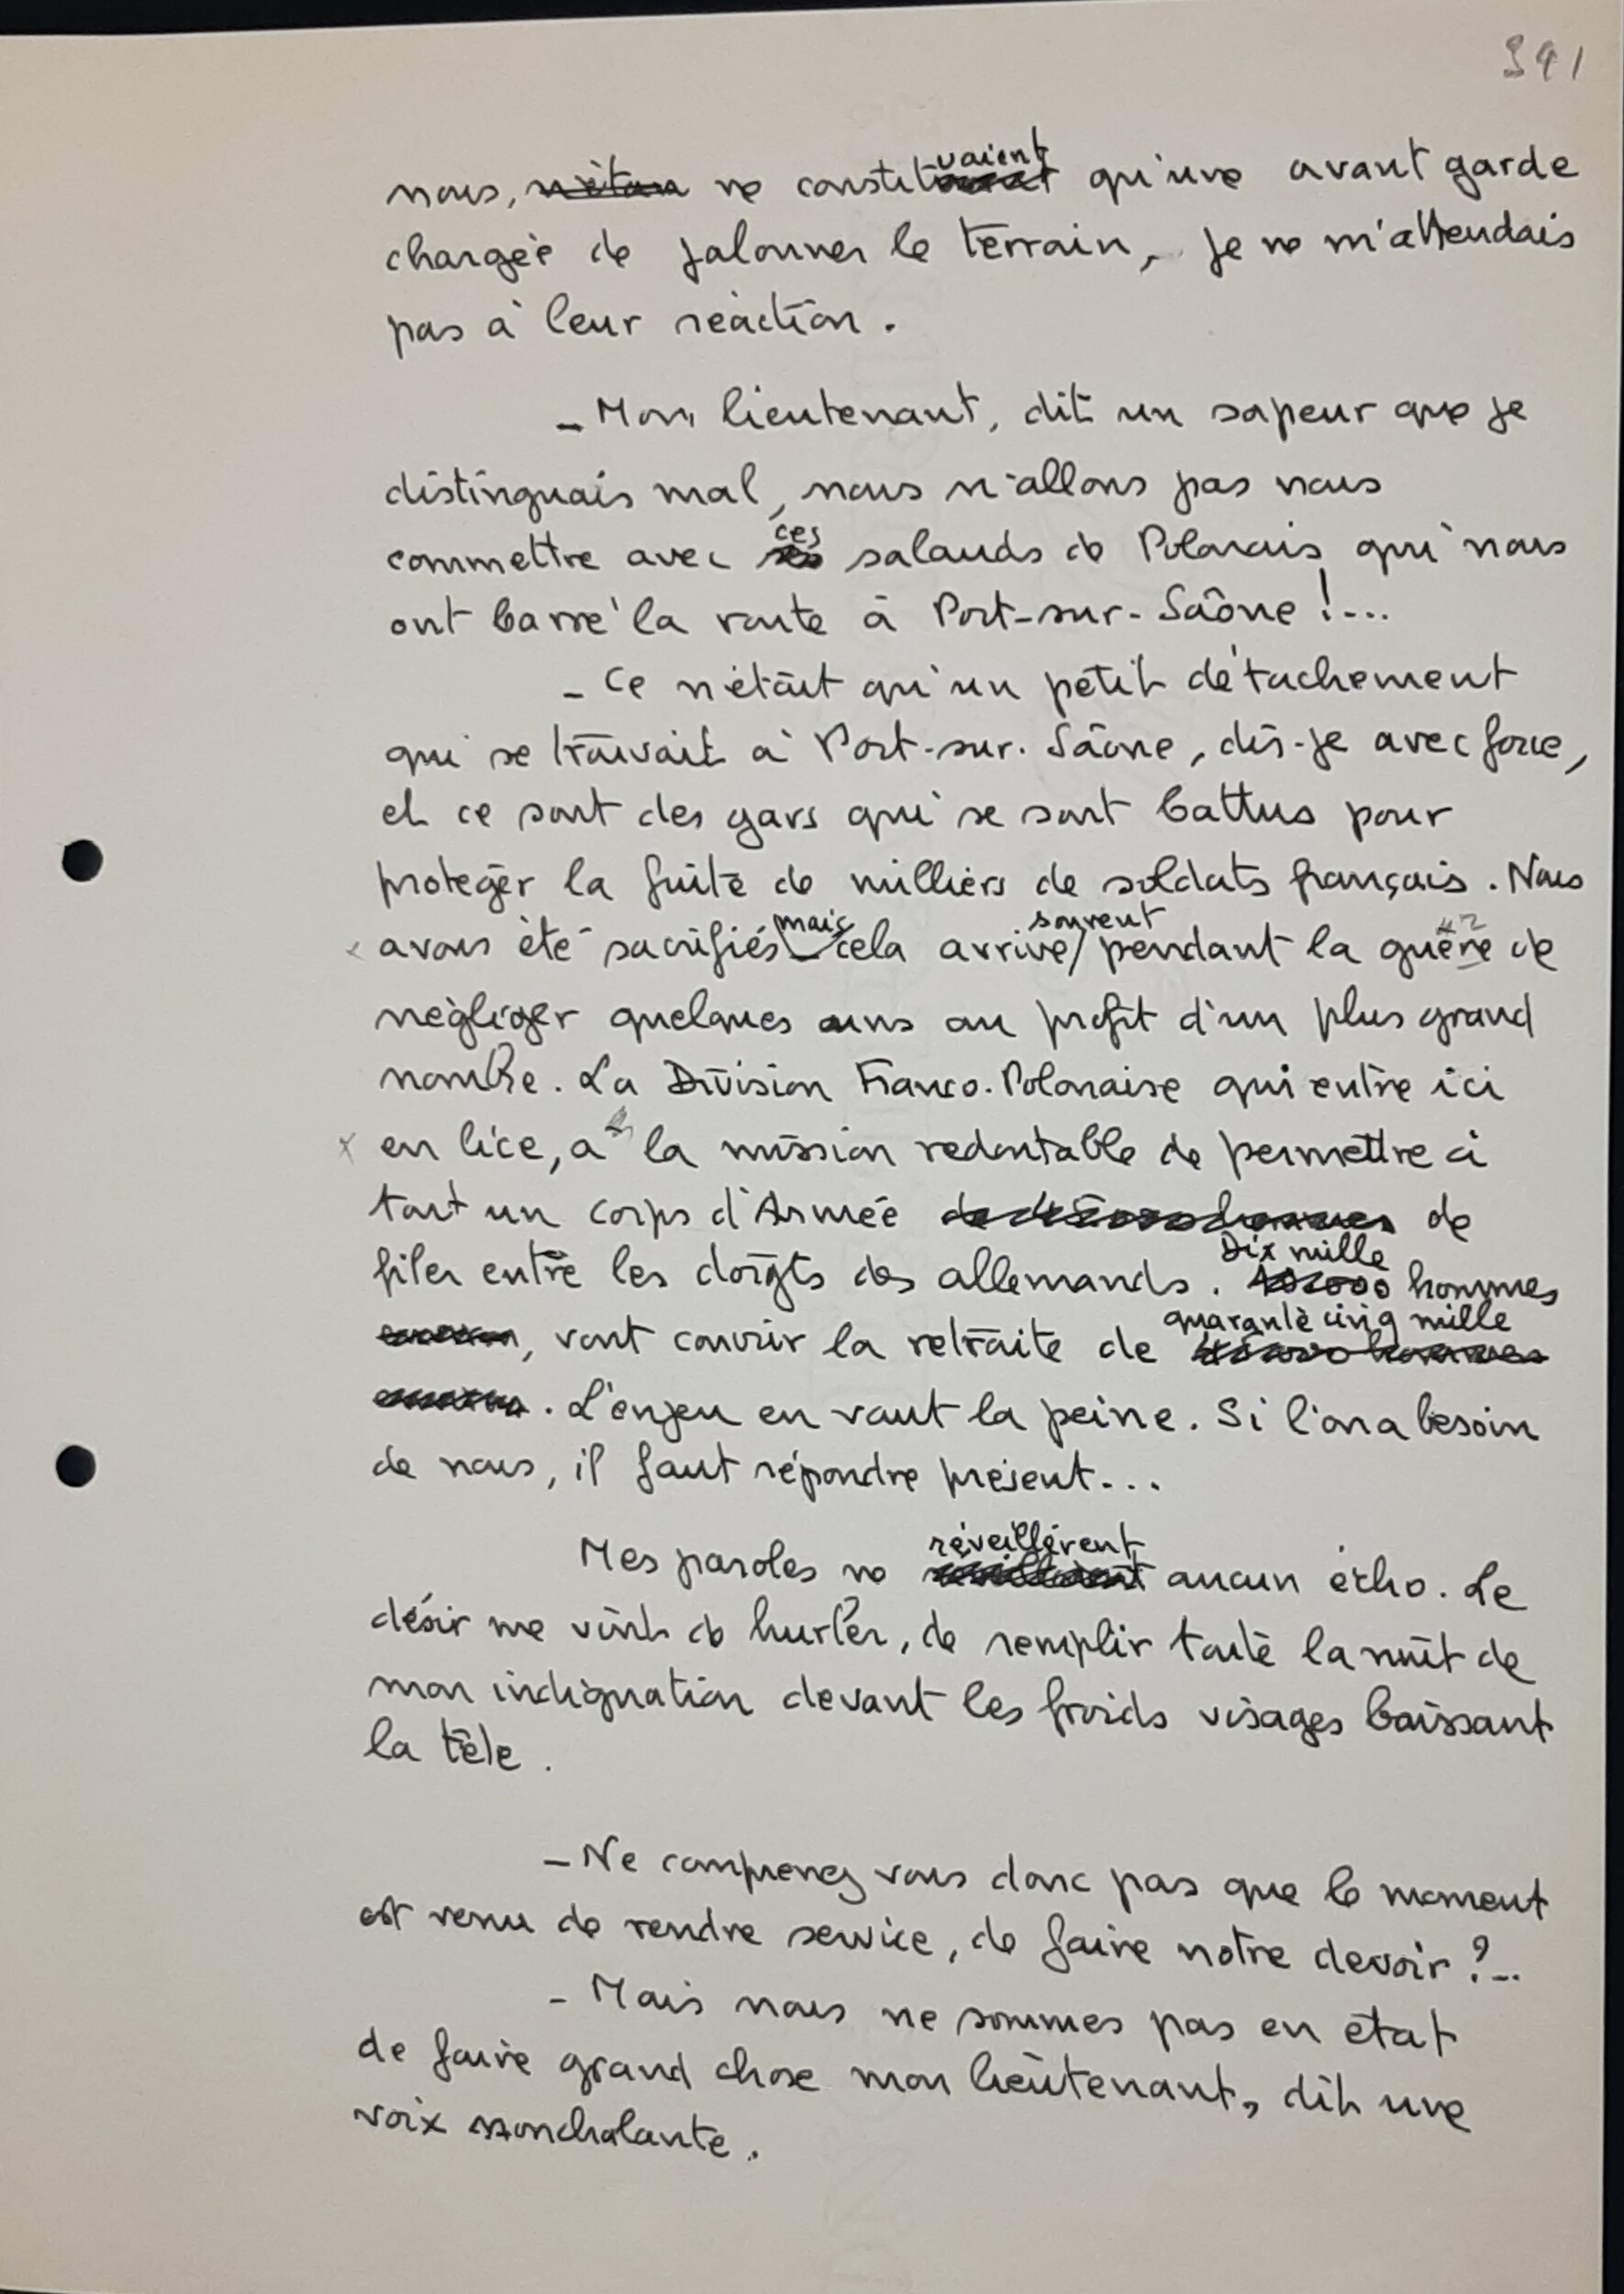 391
nous, ne constituaient qu'une avant garde
chargée de jalonner le terrain, je ne m'attendais
pas à leur réaction.
- Mon lieutenant, dit un sapeur que je
distinguais mal, nous n'allons pas nous
commettre avec ces salauds de Polonais qui nous
ont barré la route à Port-sur-Saône !...
- Ce n'était qu'un petit détachement
qui se trouvait à Port-sur-Saône, dis-je avec force,
et ce sont des gars qui se sont battus pour
proteger la fuite de milliers de soldats français. Nous
avons été sacrifiés mais cela arrive souvent pendant la guère de
négliger quelques uns au profit d'un plus grand
nombre. La Division Franco-Polonaise qui entre ici
en lice, a la mission redoutable de permettre à
tout un corps d'Armée de
filer entre les doigts des allemands. Dix mille hommes
, vont couvrir la retraite de quarante cinq mille
. L'enjeu en vaut la peine. Si l'on a besoin
de nous, il faut répondre présent...
Mes paroles ne réveillèrent aucun écho. Le
désir me vint de hurler, de remplir toute la nuit de
mon indignation devant les froids visages baissant
la tête.
- Ne comprenez vous donc pas que le moment
est venu de rendre service, de faire notre devoir ?...
- Mais nous ne sommes pas en état
de faire grand chose mon lieutenant, dit une
voix nonchalante.